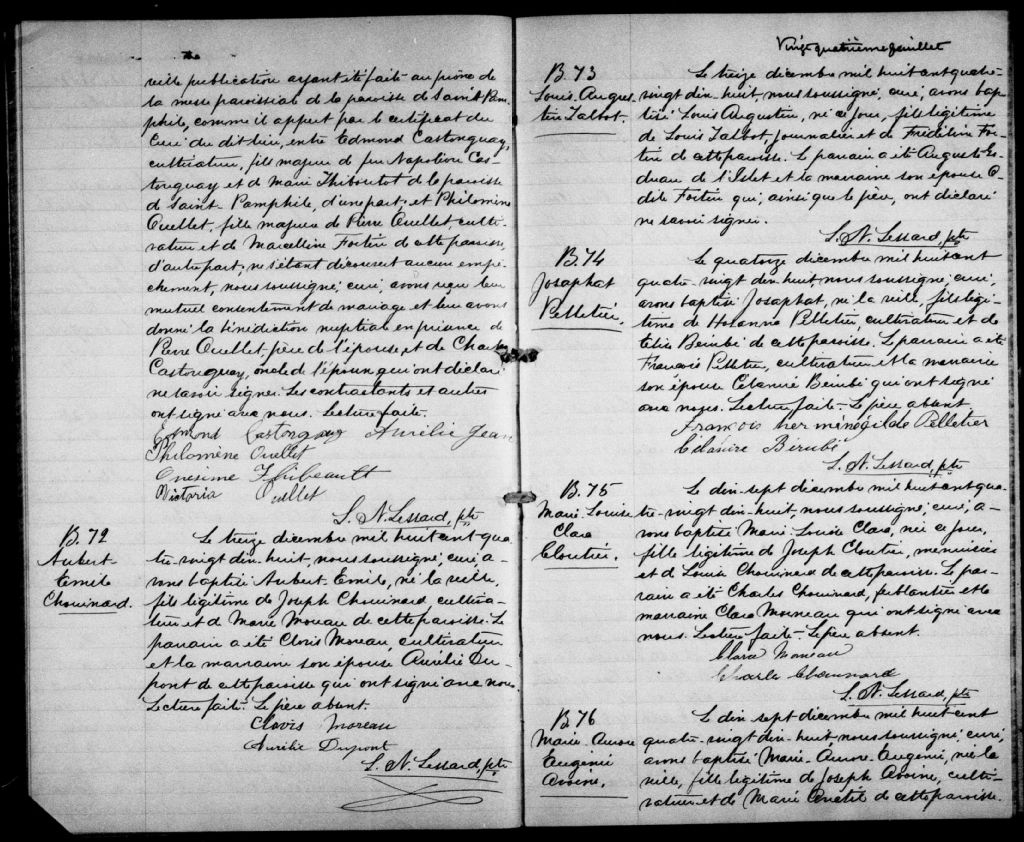 velle publication ayant été faite au prône de
la messe paroissiale de la paroisse de Saint Pam-
phile, comme il appert par le certificat du
Curé du dit lieu, entre Edmond Castonguay,
cultivateur, fils majeur de feu Napoléon Cas-
tonguay et de Marie Thiboutot de la paroisse
de Saint Pamphile, d'une part, et Philomène
Ouellet, fille majeure de Pierre Ouellet, culti-
vateur et de Marcelline Fortin de cette paroisse,
d'autre part; ne s'étant découvert aucun empê-
chement, nous soussigné, curé, avons reçu leur
mutuel consentement de mariage et leur avons
donné la bénédiction nuptiale en présence de
Pierre Ouellet, père de l'épouse, et de Charles
Castonguay, oncle de l'époux qui ont déclaré
ne savoir signer. Les contractants et autres
ont signé avec nous. Lecture faite.
Edmond Castonguay Aurélie Jean
Philomène Ouellet
Onésime Thibeault
Victoria Ouellet
S. N. Lessard, ptre
B. 72
Aubert
Emile
Chouinard.
Le treize décembre mil huit cent qua
tre-vingt dix-huit, nous soussigné, curé, a-
vons baptisé Aubert Emile, né la veille,
fils légitime de Joseph Chouinard, cultiva-
teur et de Marie Moreau de cette paroisse. Le
parrain a été Clovis Moreau, cultivateur
et la marraine son épouse Aurélie Du-
pont de cette paroisse qui ont signé avec nous.
Lecture faite. Le père absent.
Clovis Moreau
Aurélie Dupont
S. N. Lessard, ptre
Vingt quatrième feuillet
B. 73
Louis Augus
tin Talbot.
Le treize décembre mil huit cent quatre-
vingt dix-huit, nous soussigné, curé, avons bap
tisé Louis Augustin, né ce jour, fils légitime
de Louis Talbot, journalier et de Frédéline For-
tin de cette paroisse. Le parrain a été Auguste
de l'Islet et la marraine son épouse O-
dile Fortin qui, ainsi que le père, ont déclaré
ne savoir signer.
S. N. Lessard, ptre
B. 74
Josaphat
Pelletier.
Le quatorze décembre mil huit cent
quatre-vingt dix-huit, nous soussigné, curé,
avons baptisé Josaphat, né la veille, fils légi-
time de Hosanna Pelletier, cultivateur et de
Bérubé de cette paroisse. Le parrain a été
François Pelletier, cultivateur et la marraine
son épouse Célanire Bérubé qui ont signé
avec nous. Lecture faite. Le père absent.
François herménégilde Pelletier
Célanire Bérubé
S. N. Lessard, ptre
B. 75
Marie Louise
Clara
Cloutier.
Le dix-sept décembre mil huit cent qua-
tre-vingt dix-huit, nous soussigné, curé, a-
vons baptisé Marie Louise Clara, née ce jour,
fille légitime de Joseph Cloutier, menuisier
et de Louise Chouinard de cette paroisse. Le par-
rain a été Charles Chouinard, ferblantier et la
marraine Clara Morneau qui ont signé avec
nous. Lecture faite. Le père absent.
Clara Morneau
Charles Chouinard
S. N. Lessard, ptre
B. 76
Marie-Aurore
Eugénie
Avoine.
Le dix-sept décembre mil huit cent
quatre-vingt dix-huit, nous soussigné, curé,
avons baptisé Marie-Aurore-Eugénie, née la
veille, fille légitime de Joseph Avoine, culti-
vateur et de Marie Anctil de cette paroisse.